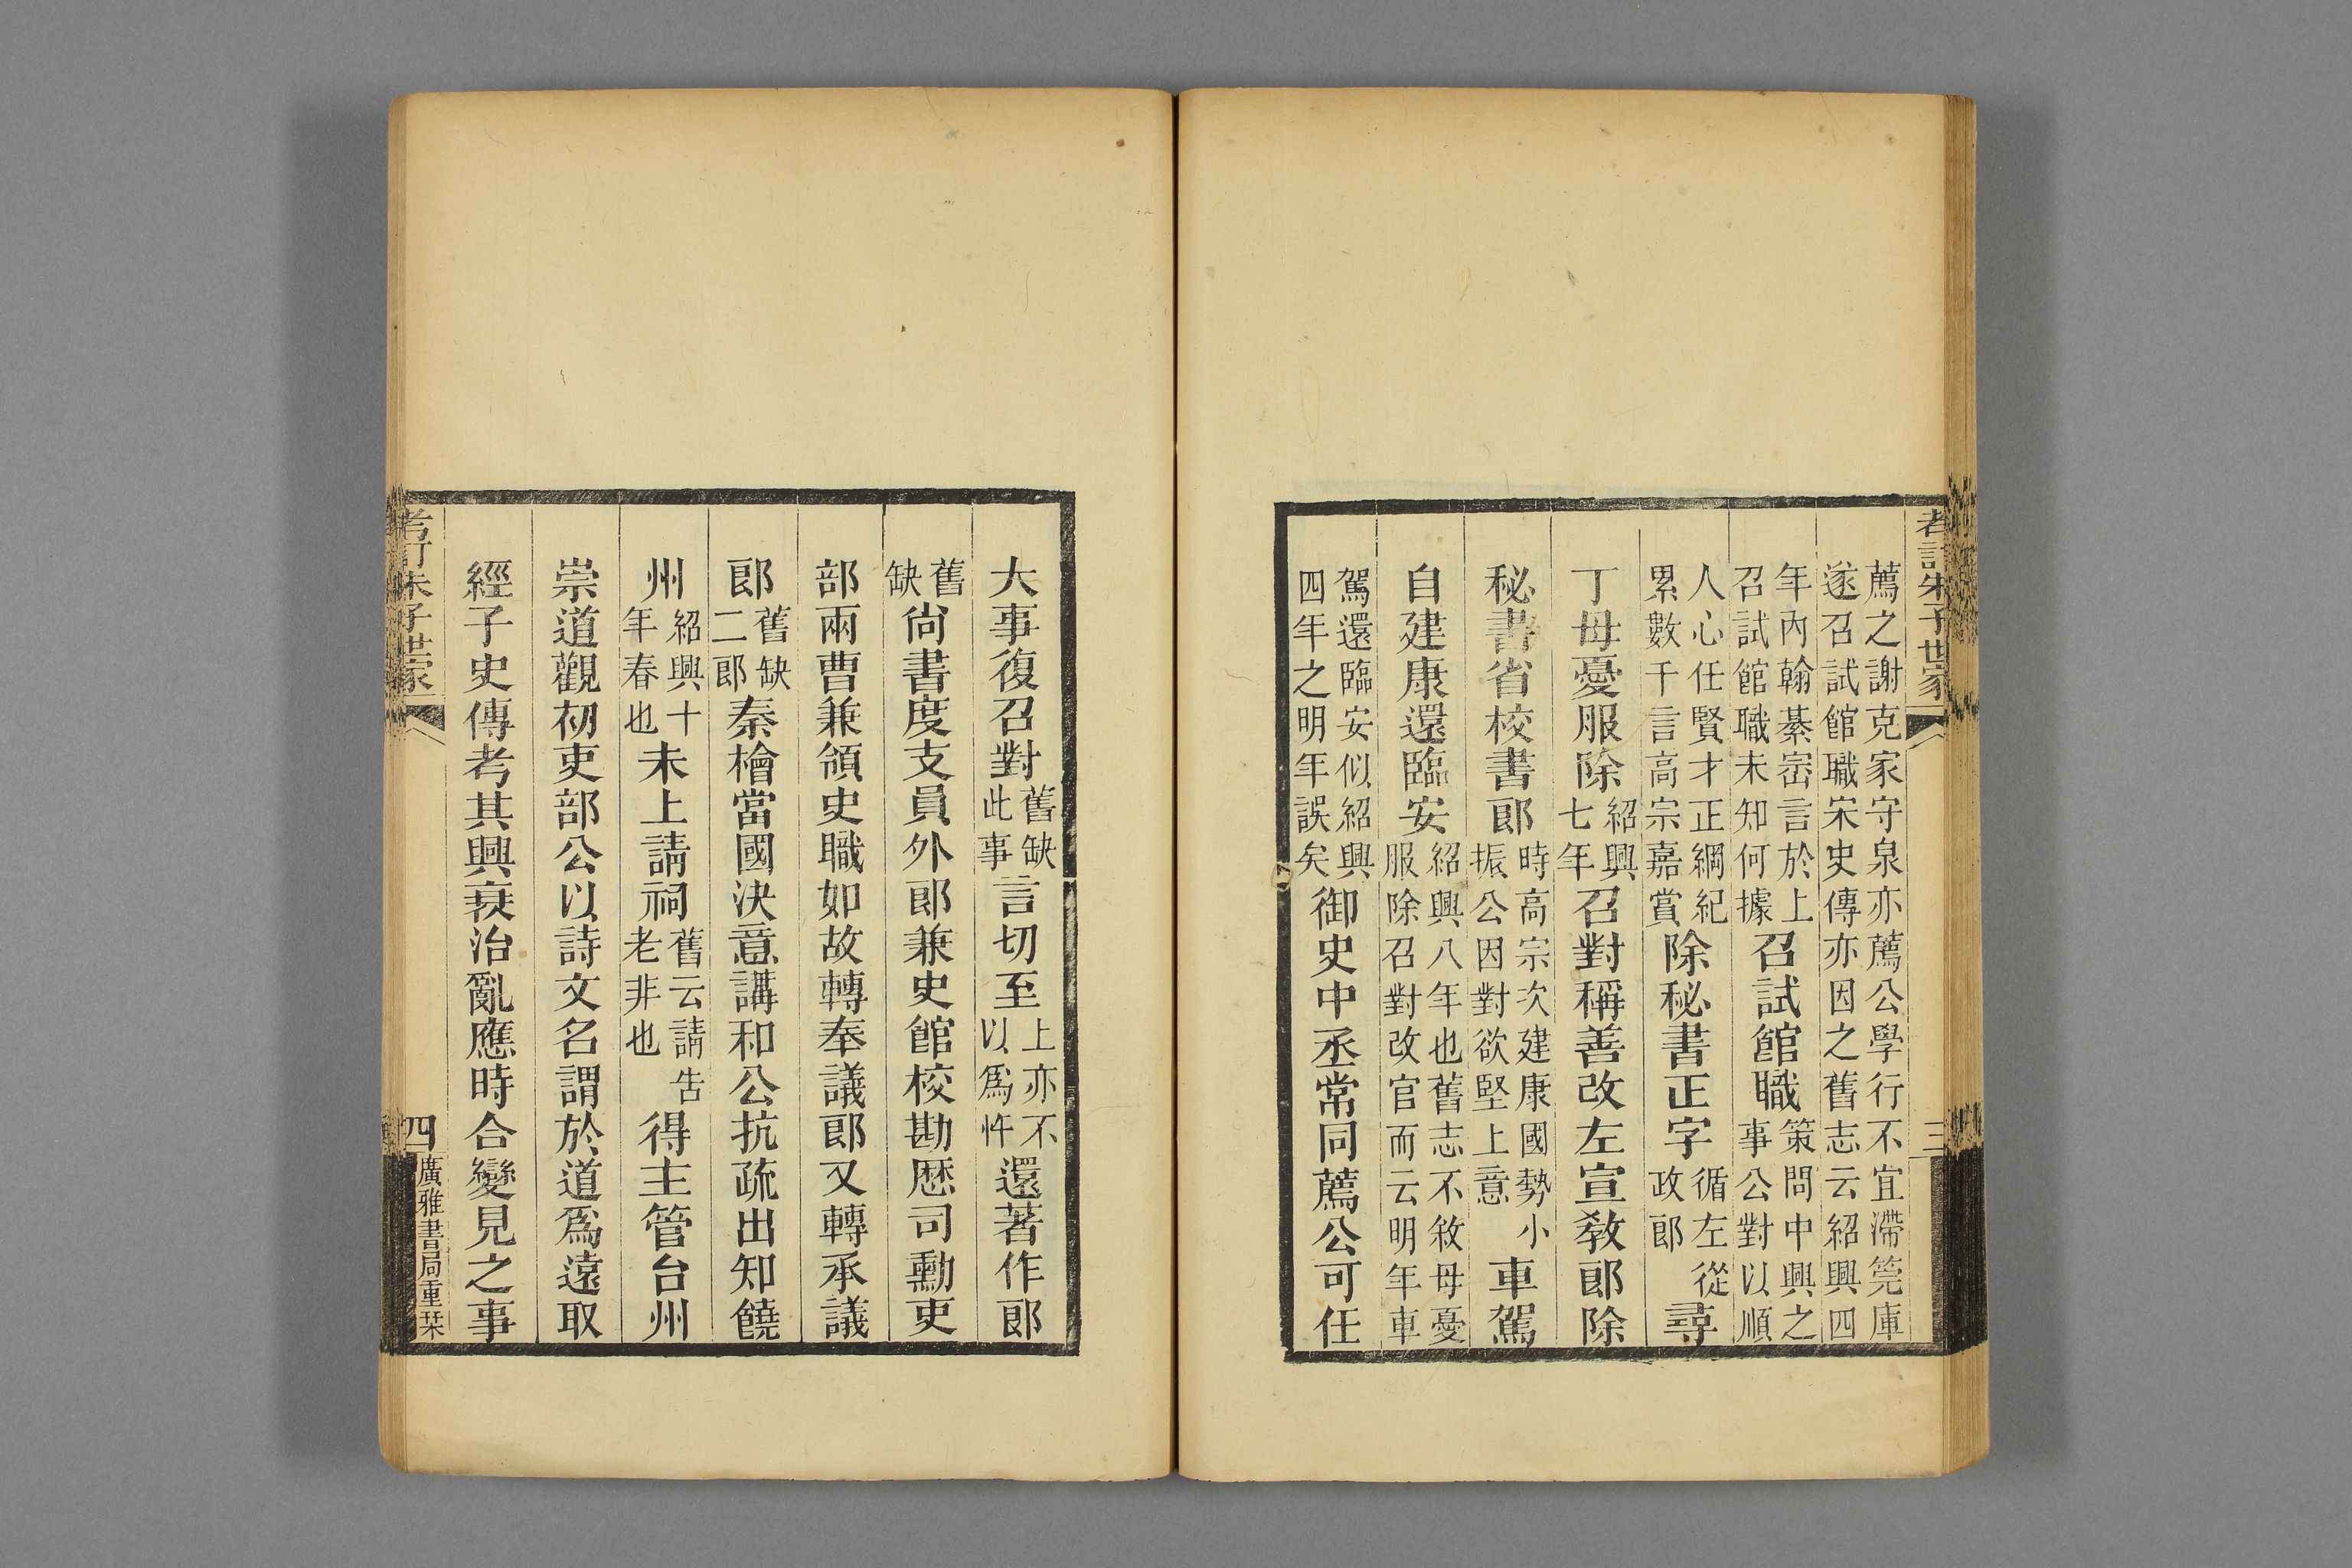 考訂朱子世家 三
薦之謝克家守泉亦薦公學行不宜滯筦庫遂召試館職宋史傳亦因之舊志云紹興四
年內翰綦崈言於上召試館職未知何據召試館職策問中興之事公對以順
人心任賢才正綱紀累數千言高宗嘉賞除秘書正字循左從政郎尋
丁母憂服除紹興七年召對稱善改左宣敎郎除
秘書省校書郎時高宗次建康國勢小振公因對欲堅上意車駕
自建康還臨安紹興八年也舊志不敘母憂服除召對改官而云明年車
駕還臨安似紹興四年之明年誤矣御史中丞常同薦公可任
大事復召對舊缺此事言切至上亦不以爲忤還著作郎
舊缺尙書度支員外郎兼史館校勘歷司勳吏
部兩曹兼領史職如故轉奉議郎又轉承議
郎舊缺二郎秦檜當國決意講和公抗疏出知饒
州紹興十年春也未上請祠舊云請告老非也得主管台州
崇道觀初吏部公以詩文名謂於道爲遠取
經子史傳考其興衰治亂應時合變見之事
考訂朱子世家 四 廣雅書局重栞